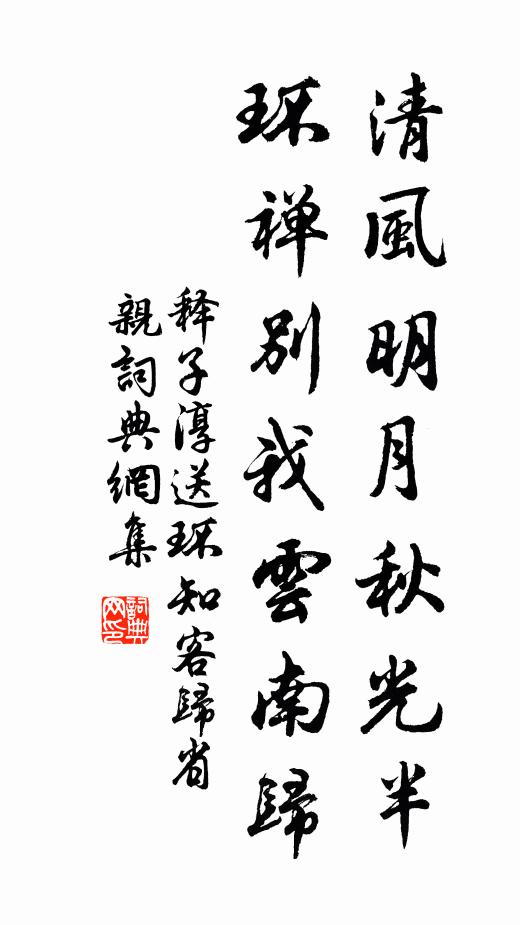 清風明月秋光半
环禅別我雲南歸
释子淳送环知客歸省
親詞典網集
詞典网印